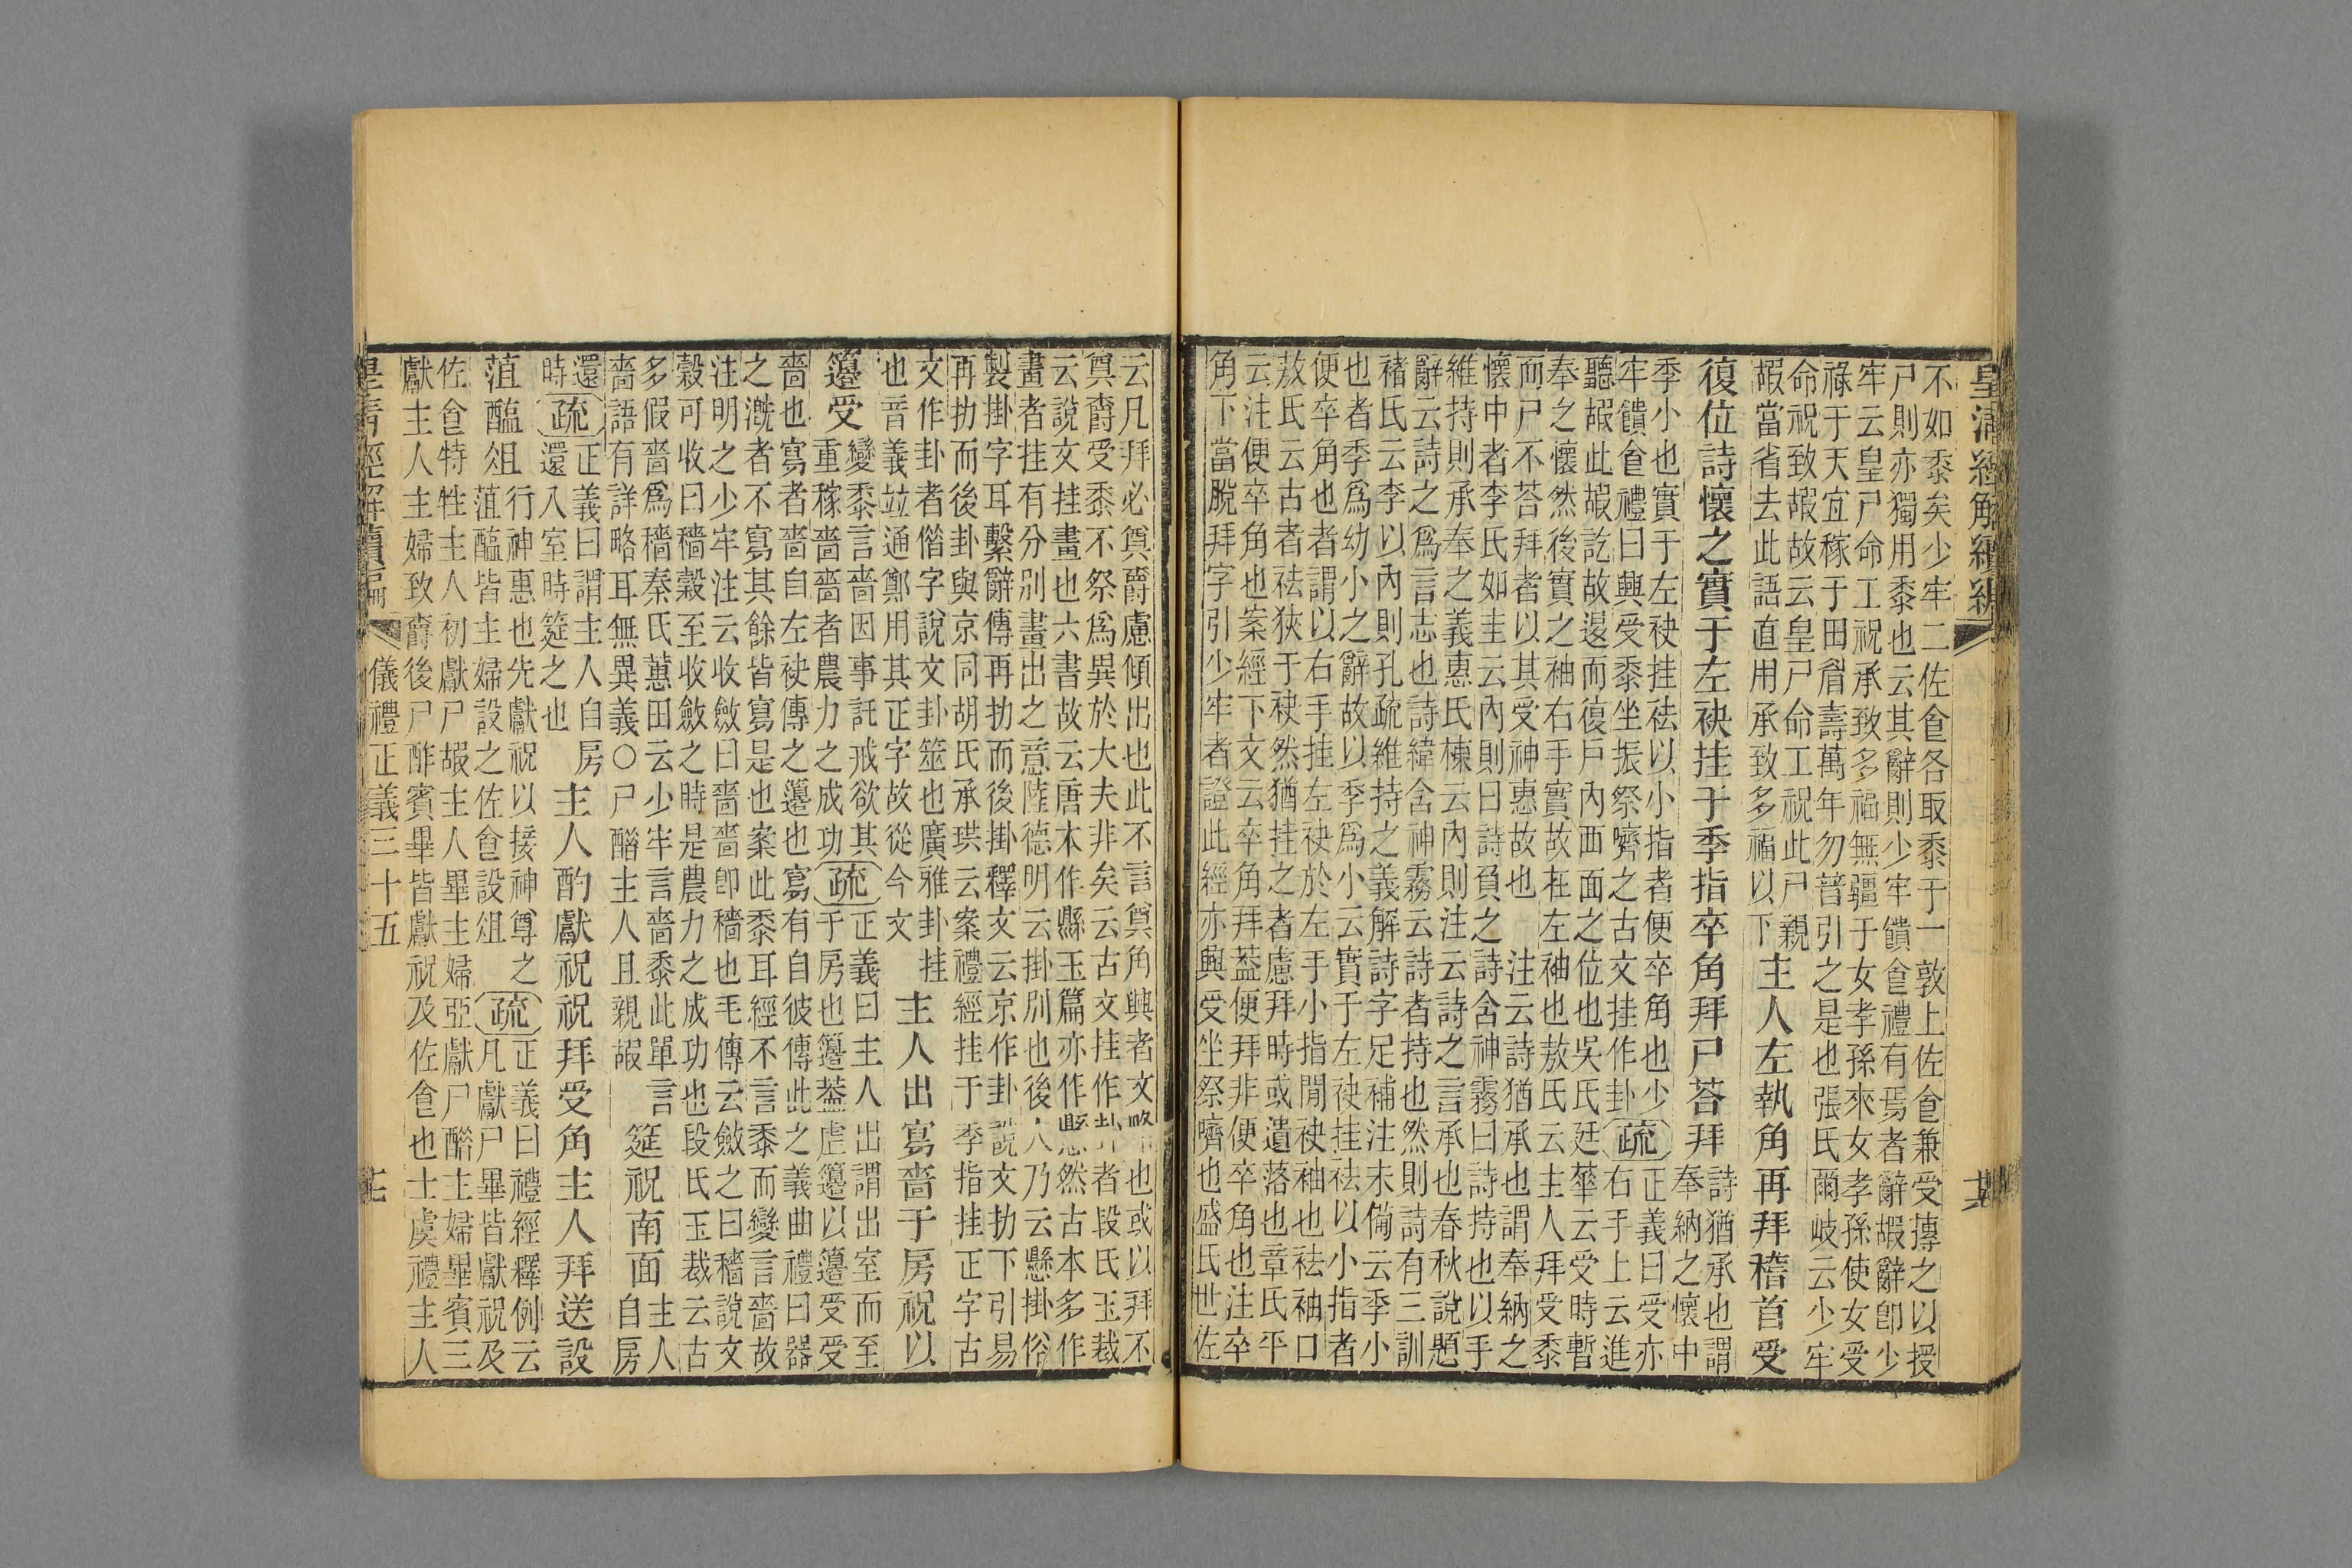 皇清經解續編
不如黍矣少牢二佐食各取黍于一敦上佐食兼受摶之以授
尸則亦獨用黍也云其辭則少牢饋食禮有焉者辭嘏辭卽少
牢云皇尸命工祝承致多福無疆于女孝孫來女孝孫使女受
祿于天宜稼于田眉壽萬年勿朁引之是也張氏爾岐云少牢
命祝致嘏故云皇尸命工祝此尸親
嘏當省去此語直用承致多福以下
主人左執角再拜稽首受
復位詩懷之實于左袂挂于季指卒角拜尸荅拜
詩猶承也謂
奉納之懷中
季小也實于左袂挂袪以小指者便卒角也少
牢饋食禮曰興受黍坐振祭嚌之古文挂作卦
疏
正義曰受亦
右手上云進
聽嘏此嘏訖故還而復戶內西面之位也吳氏廷華云受時暫
奉之懷然後實之袖右手實故在左袖也敖氏云主人拜受黍
而尸不荅拜者以其受神惠故也　注云詩猶承也謂奉納之
懷中者李氏如圭云內則曰詩負之詩含神霧曰詩持也以手
維持則承奉之義惠氏棟云內則注云詩之言承也春秋說題
辭云詩之爲言志也詩緯含神霧云詩者持也然則詩有三訓
褚氏云李以內則孔疏維持之義解詩字足補注未備云季小
也者季爲幼小之辭故以季爲小云實于左袂挂袪以小指者
便卒角也者謂以右手挂左袂於左手小指閒袂袖也袪袖口
敖氏云古者袪狹于袂然猶挂之者慮拜時或遺落也章氏平
云注便卒角也案經下文云卒角拜葢便拜非便卒角也注卒
角下當脫拜字引少牢者證此經亦興受坐祭嚌也盛氏世佐
云凡拜必奠爵慮傾出也此不言奠角興者文略也或以拜不
奠爵受黍不祭爲異於大夫非矣云古文挂作卦者段氏玉裁
云說文挂畫也六書故云唐本作縣玉篇亦作懸然古本多作
畫者挂有分別畫出之意陸德明云掛別也後人乃云懸掛俗
製掛字耳繫辭傳再扐而後掛釋文云京作卦說文扐下引易
再扐而後卦與京同胡氏承珙云案禮經挂于季指挂正字古
文作卦者偕字說文卦筮也廣雅卦挂
也音義竝通鄭用其正字故從今文
主人出寫嗇于房祝以
籩受
變黍言嗇因事託戒欲其
重稼嗇嗇者農力之成功
疏
正義曰主人出謂出室而至
于房也籩葢虛籩以籩受受
嗇也寫者嗇自左袂傳之籩也寫有自彼傳此之義曲禮曰器
之漑者不寫其餘皆寫是也案此黍耳經不言黍而變言嗇故
注明之少牢注云收斂曰嗇嗇卽穡也毛傳云斂之曰穡說文
穀可收曰穡穀至收斂之時是農力之成功也段氏玉裁云古
多假嗇爲穡秦氏蕙田云少牢言嗇黍此單言
嗇語有詳略耳無異義○尸醋主人且親嘏
筵祝南面
主人
自房
還
時
疏
正義曰謂主人自房
還入室時筵之也
主人酌獻祝祝拜受角主人拜送設
菹醢俎
行神惠也先獻祝以接神尊之
菹醢皆主婦設之佐食設俎
疏
正義曰禮經釋例云
凡獻尸畢皆獻祝及
佐食特牲主人初獻尸嘏主人畢主婦亞獻尸醋主婦畢賓三
獻主人主婦致爵後尸酢賓畢皆獻祝及佐食也士虞禮主人
皇清經解續編
儀禮正義三十五